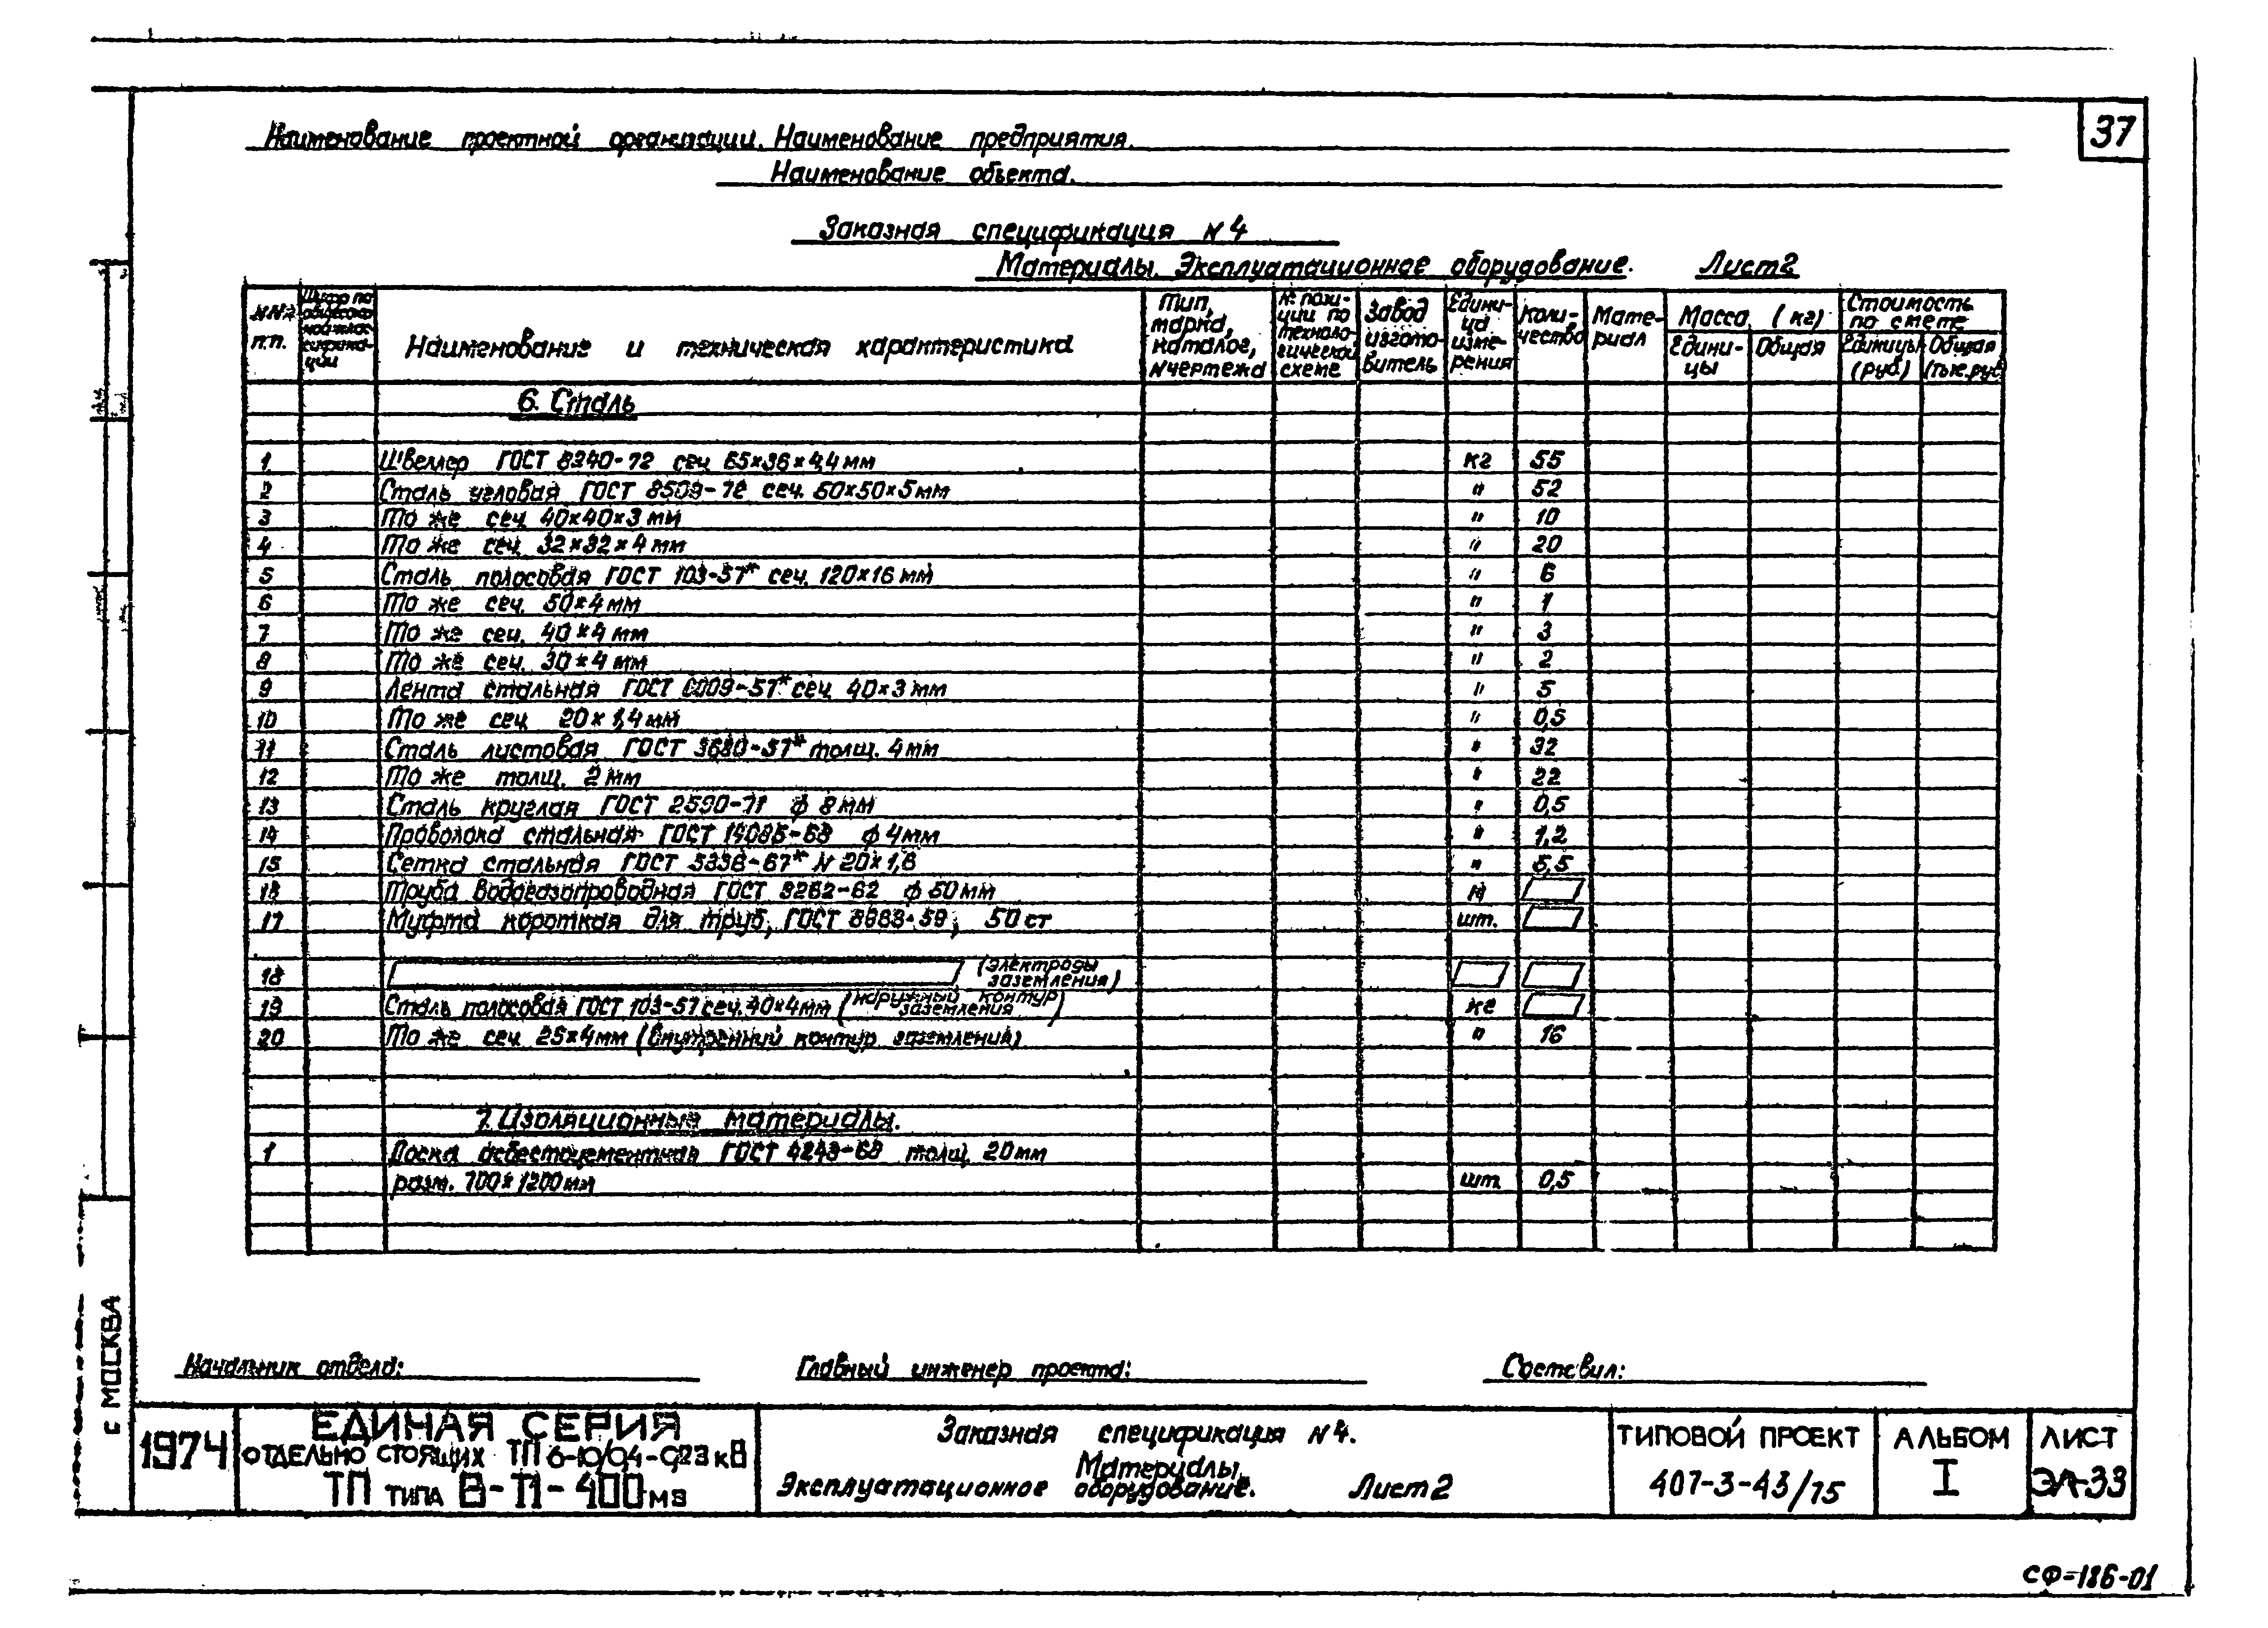 37
Наименование проектной организации. Наименование предприятия.
Наименование объекта.
Заказная спецификация N 4
Материалы. Эксплуатационное оборудование. Лист 2
NN п.п.
Наименование и техническая характеристика
Тип, марка, каталог, N чертежа
№ позиции по технологической схеме
Завод изготовитель
Единица измерения
Количество
Материал
Масса (кг)
Единицы
Общая
Стоимость по смете
Единицы (руб)
Общая (тыс.руб
6. Сталь
1 Швеллер ГОСТ 8240-72 сеч 65×36×4,4 мм кг 55
2 Сталь угловая ГОСТ 8509-72 сеч. 50×50×5 мм " 52
3 То же сеч 40×40×3 мм " 10
4 То же сеч. 32×32×4 мм " 20
5 Сталь полосовая ГОСТ 103-57* сеч. 120×16 мм " 6
6 То же сеч. 50×4 мм " 1
7 То же сеч. 40×4 мм " 3
8 То же сеч. 30×4 мм " 2
9 Лента стальная ГОСТ 6009-57* сеч 40×3 мм " 5
10 То же сеч 20×1,4 мм " 0,5
11 Сталь листовая ГОСТ 3680-57* толщ. 4 мм " 32
12 То же толщ. 2 мм " 22
13 Сталь круглая ГОСТ 2590-71 ф 8 мм " 0,5
14 Проволока стальная ГОСТ 14085-68 ф 4 мм " 1,2
15 Сетка стальная ГОСТ 5336-67* N 20×1,6 " 5,5
16 Труба водогазопроводная ГОСТ 3262-62 ф 50 мм м
17 Муфта короткая для труб, ГОСТ 8966-59, 50 ст шт.
18 (электроды заземления)
19 Сталь полосовая ГОСТ 103-57 сеч. 40×4 мм (наружный контур заземления) кг
20 То же сеч 25×4 мм (внутренний контур заземления) " 16
7. Изоляционные материалы.
1 Доска асбестоцементная ГОСТ 4248-68 толщ 20 мм
разм. 700×1200 мм шт 0,5
Начальник отдела: Главный инженер проекта: Составил:
г МОСКВА
1974
ЕДИНАЯ СЕРИЯ
ОТДЕЛЬНО СТОЯЩИХ ТП 6-10/0,4-0,23 кВ
ТП ТИПА В-Т1-400 м3
Заказная спецификация N 4.
Материалы.
Эксплуатационное оборудование. Лист 2
ТИПОВОЙ ПРОЕКТ
407-3-43/75
АЛЬБОМ
I
ЛИСТ
ЭЛ-33
СФ-186-01